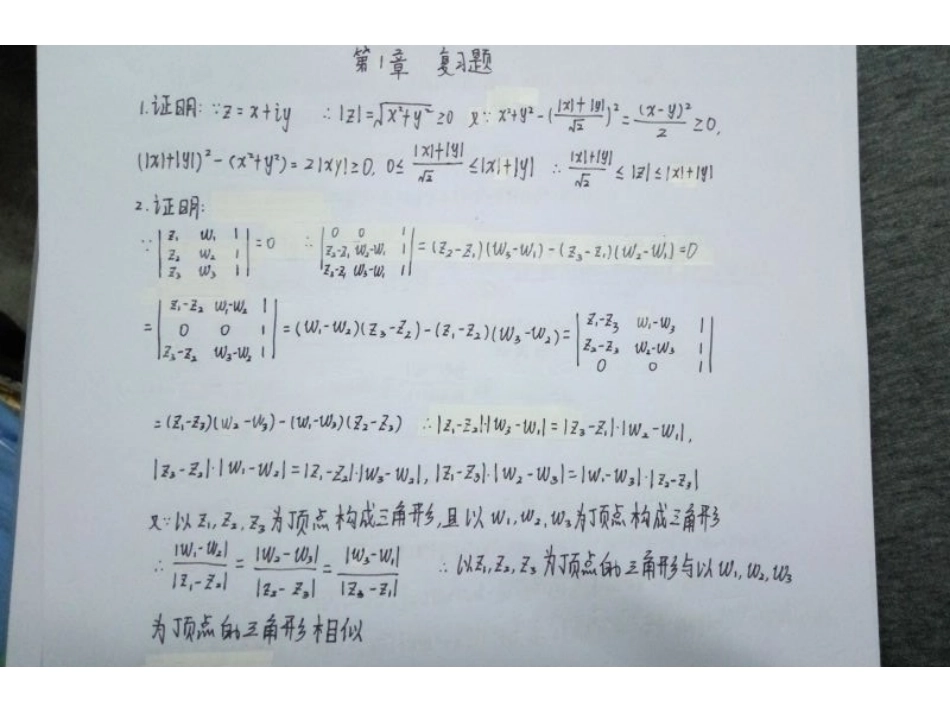 第1章 复习题
1.证明:∵z=x+iy ∴|z|=√(x²+y²)≥0 又∵x²+y²-((|x|+|y|)/√2)²=(x-y)²/2≥0,
(|x|+|y|)²-(x²+y²)=2|xy|≥0, 0≤(|x|+|y|)/√2≤|x|+|y| ∴(|x|+|y|)/√2≤|z|≤|x|+|y|
2.证明:
∵|z₁ w₁ 1; z₂ w₂ 1; z₃ w₃ 1|=0 ∴|0 0 1; z₂-z₁ w₂-w₁ 1; z₃-z₁ w₃-w₁ 1|=(z₂-z₁)(w₃-w₁)-(z₃-z₁)(w₂-w₁)=0
=|z₁-z₂ w₁-w₂ 1; 0 0 1; z₃-z₂ w₃-w₂ 1|=(w₁-w₂)(z₃-z₂)-(z₁-z₂)(w₃-w₂)=|z₁-z₃ w₁-w₃ 1; z₂-z₃ w₂-w₃ 1; 0 0 1|
=(z₁-z₃)(w₂-w₃)-(w₁-w₃)(z₂-z₃) ∴|z₁-z₂|·|w₃-w₁|=|z₃-z₁|·|w₂-w₁|,
|z₃-z₂|·|w₁-w₂|=|z₁-z₂|·|w₃-w₂|, |z₁-z₃|·|w₂-w₃|=|w₁-w₃|·|z₂-z₃|
又∵以z₁,z₂,z₃为顶点构成三角形,且以w₁,w₂,w₃为顶点构成三角形
∴|w₁-w₂|/|z₁-z₂|=|w₂-w₃|/|z₂-z₃|=|w₃-w₁|/|z₃-z₁| ∴以z₁,z₂,z₃为顶点的三角形与以w₁,w₂,w₃
为顶点的三角形相似